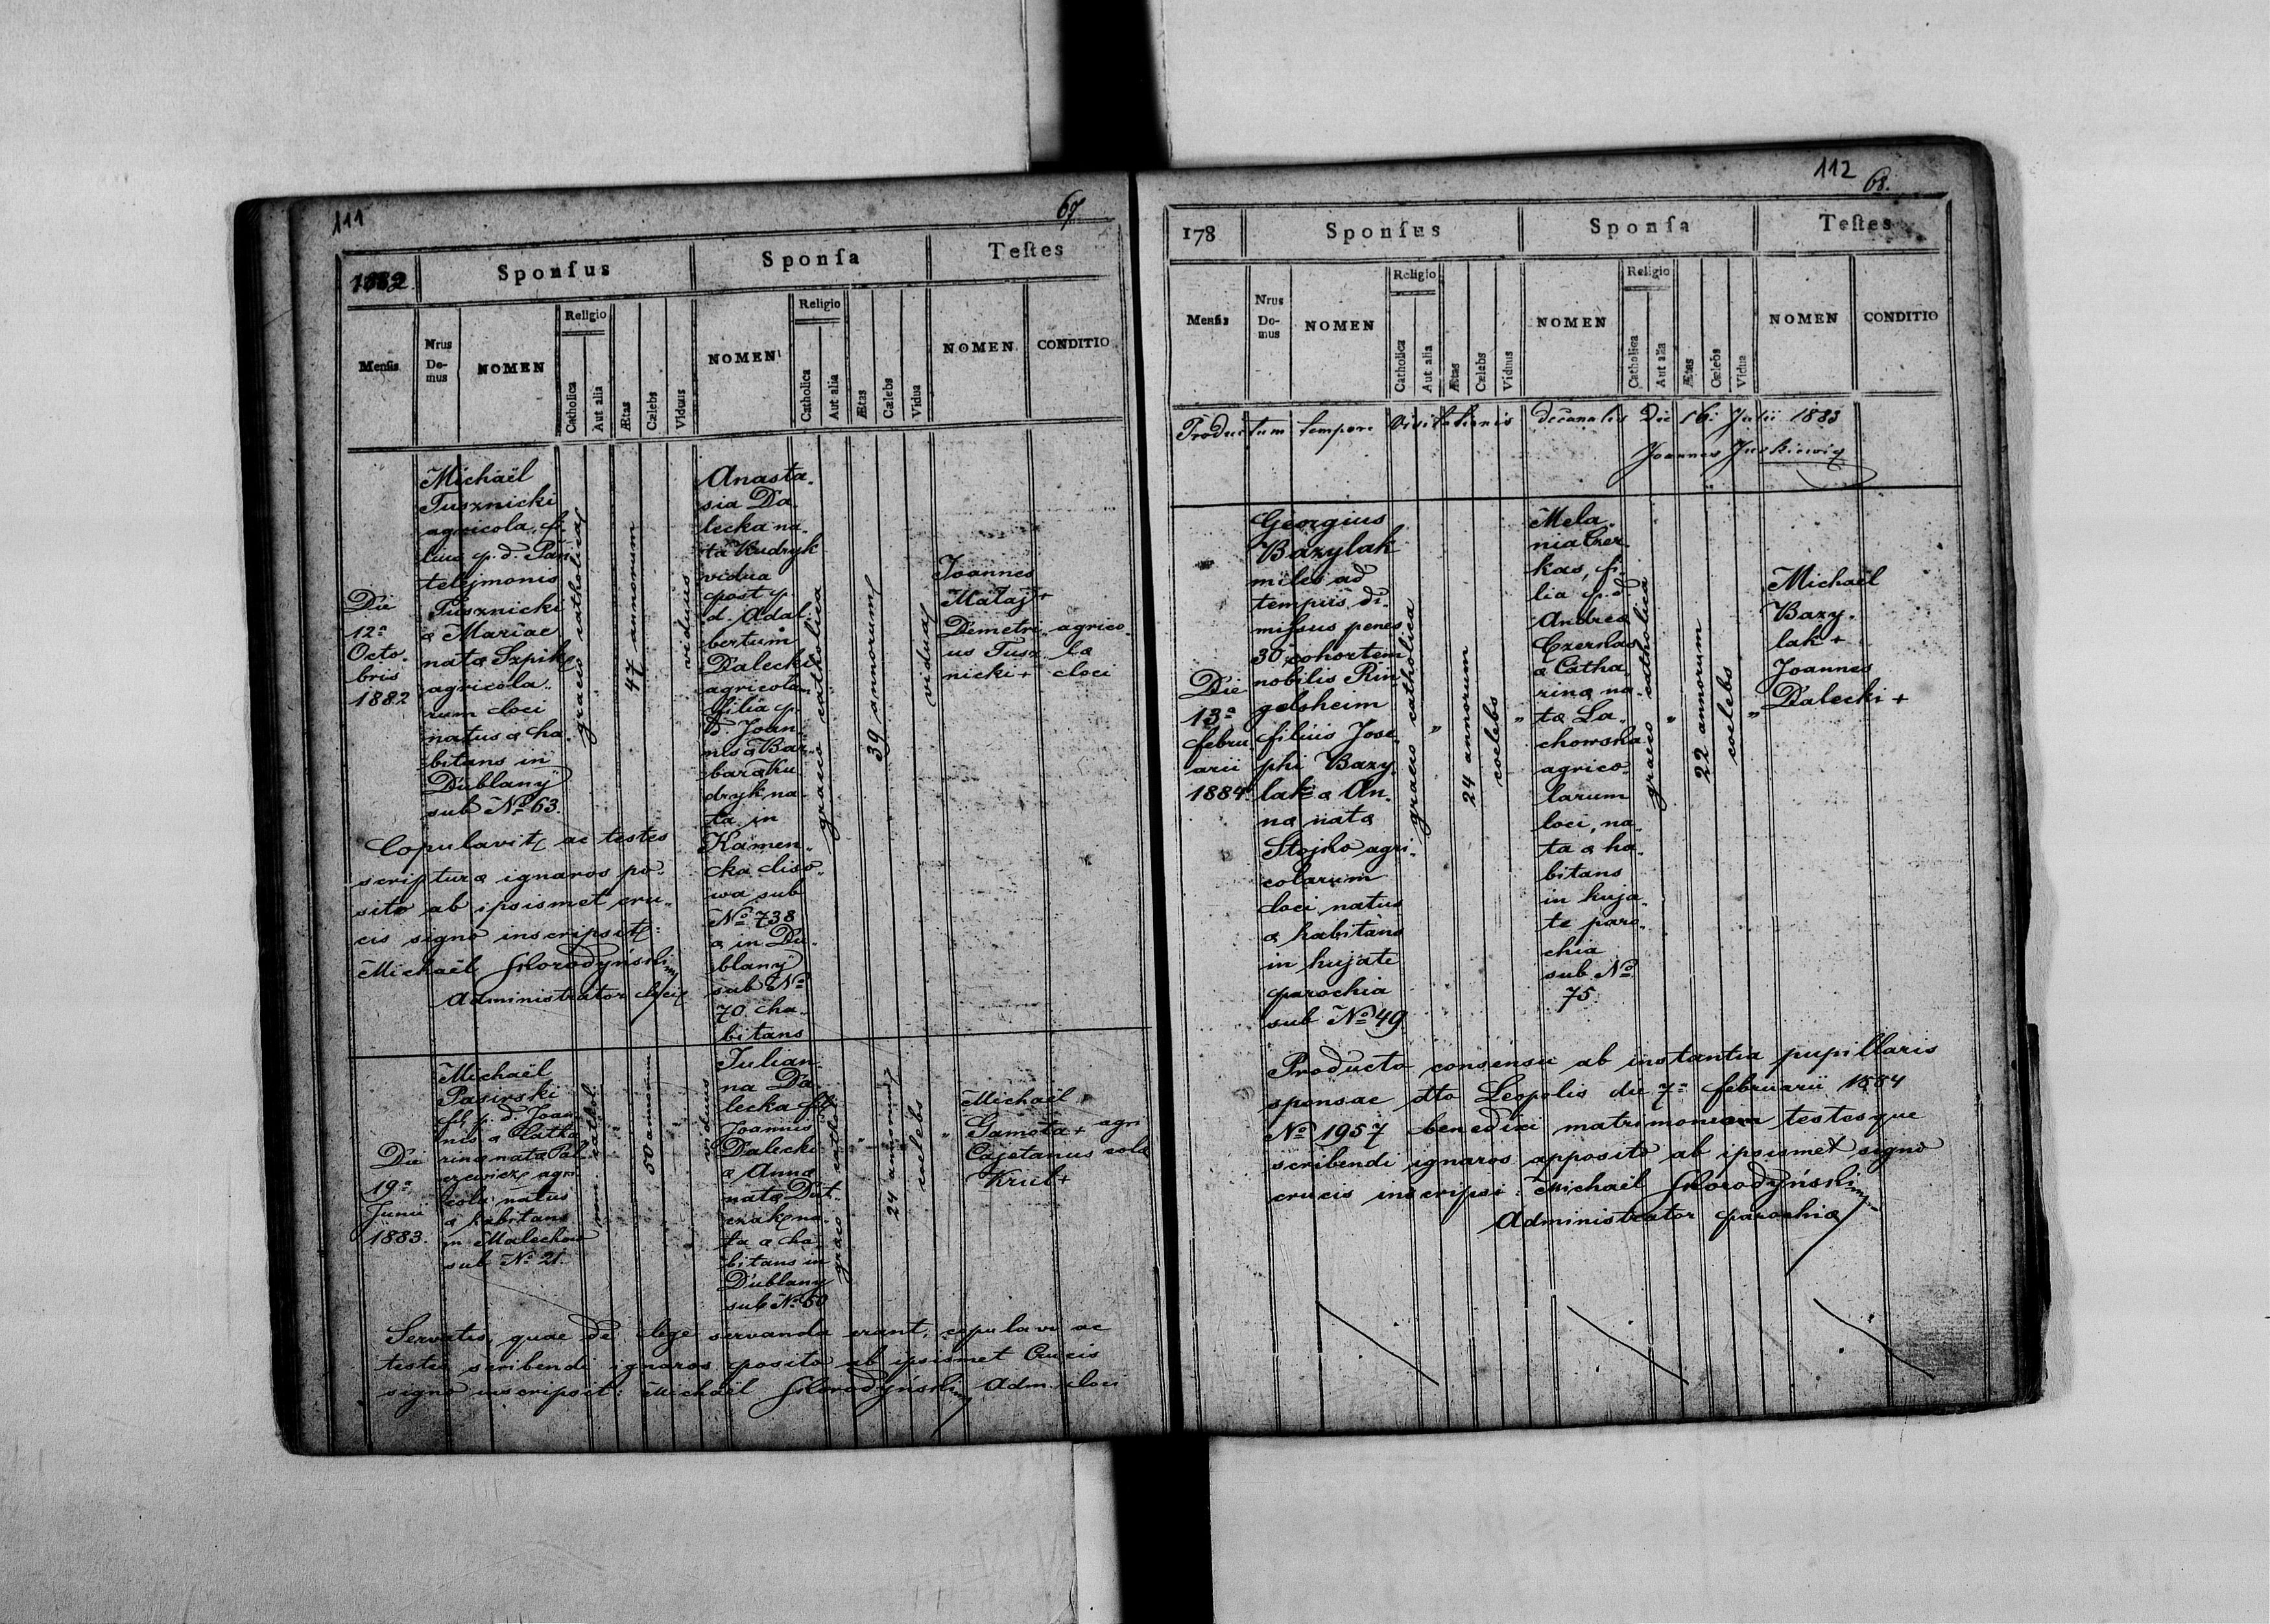 111
67.
1882.
Sponſus
Sponſa
Teſtes
Menſis
Nrus Do-mus
NOMEN
Religio
Catholica
Aut alia
Ætas
Cælebs
Viduus
NOMEN
Religio
Catholica
Aut alia
Ætas
Cælebs
Vidua
NOMEN
CONDITIO
Die
12a
Octo-
bris
1882
Michaël
Tusznicki
agricola, fi-
lius p. d. Pan-
telejmonis
Tusznicki
& Mariae
nata Szpik
agricola-
rum loci
natus & ha-
bitans in
Dublany
sub No 63.
graeco catholica
47 annorum
viduus
Anasta-
sia Da-
lecka na-
ta Kudryk
vidua
post p.
d. Adal-
bertum
Dalecki
agricolam
filia p.
d. Joan-
nis & Bar-
bara Ku-
dryk na-
ta in
Kamen-
ka liso-
wa sub
No 738
& in Du-
blany
sub No
70 ha-
bitans
graeco catholica
39 annorum
vidua
Joannes
Mataj +
Demetri-
us Tusz-
nicki +
agrico-
la
loci
Copulavit ac testes
scriptura ignaros po-
sito ab ipsismet cru-
cis signo inscripsit:
Michaël Horodyński mp
Administrator loci
Die
19a
Junii
1883.
Michaël
Pasirski
fil. p. d. Joan-
nis & Catha-
rina nata Pal-
czewicz agri-
cola natus
& habitans
in Malechow
sub No 21.
50 annorum
viduus
Julian-
na Da-
lecka fil.
Joannis
Dalecki
& Anna
nata Dut-
czak na-
ta & ha-
bitans in
Dublany
sub No 60
graeco cathol.
24 annorum
coelebs
Michaël
Gamota +
Cajetanus
Krul +
agri-
cola
Servatis, quae de lege servanda erant, copulavi ac
testes scribendi ignaros posito ab ipsismet Crucis
signo inscripsit: Michaël Horodyński mp Adm. loci
112
68.
178
Sponſus
Sponſa
Teſtes
Menſis
Nrus Do-mus
NOMEN
Religio
Catholica
Aut alia
Ætas
Cælebs
Viduus
NOMEN
Religio
Catholica
Aut alia
Ætas
Cælebs
Vidua
NOMEN
CONDITIO
Productum tempore Visitationis decanalis Die 16 Julii 1883
Joannes
Die
13a
febru-
arii
1884.
Georgius
Bazylak
miles ad
tempus di-
missus penes
30 cohortem
nobilis Rin-
gelsheim
filius Jose-
phi Bazy-
lak & An-
na nata
Stojko agri-
colarum
loci natus
& habitans
in hujate
parochia
sub No 49
graeco catholica
"
24 annorum
coelebs
"
Mela-
nia Czer-
kas, fi-
lia p. d.
Andrea
Czerkas
& Catha-
rina na-
ta La-
chowska
agrico-
larum
loci, na-
ta & ha-
bitans
in huja-
te paro-
chia
sub No
75.
graeco catholica
"
22 annorum
coelebs
"
Michaël
Bazy-
lak +
Joannes
Dalecki +
Producto consensu ab instantia pupillaris
sponsae dto Leopolis die 7a februarii 1884
No 1957 benedixi matrimonium testesque
scribendi ignaros apposito ab ipsismet signo
crucis inscripsi: Michaël Horodyński mp
Administrator parochiae